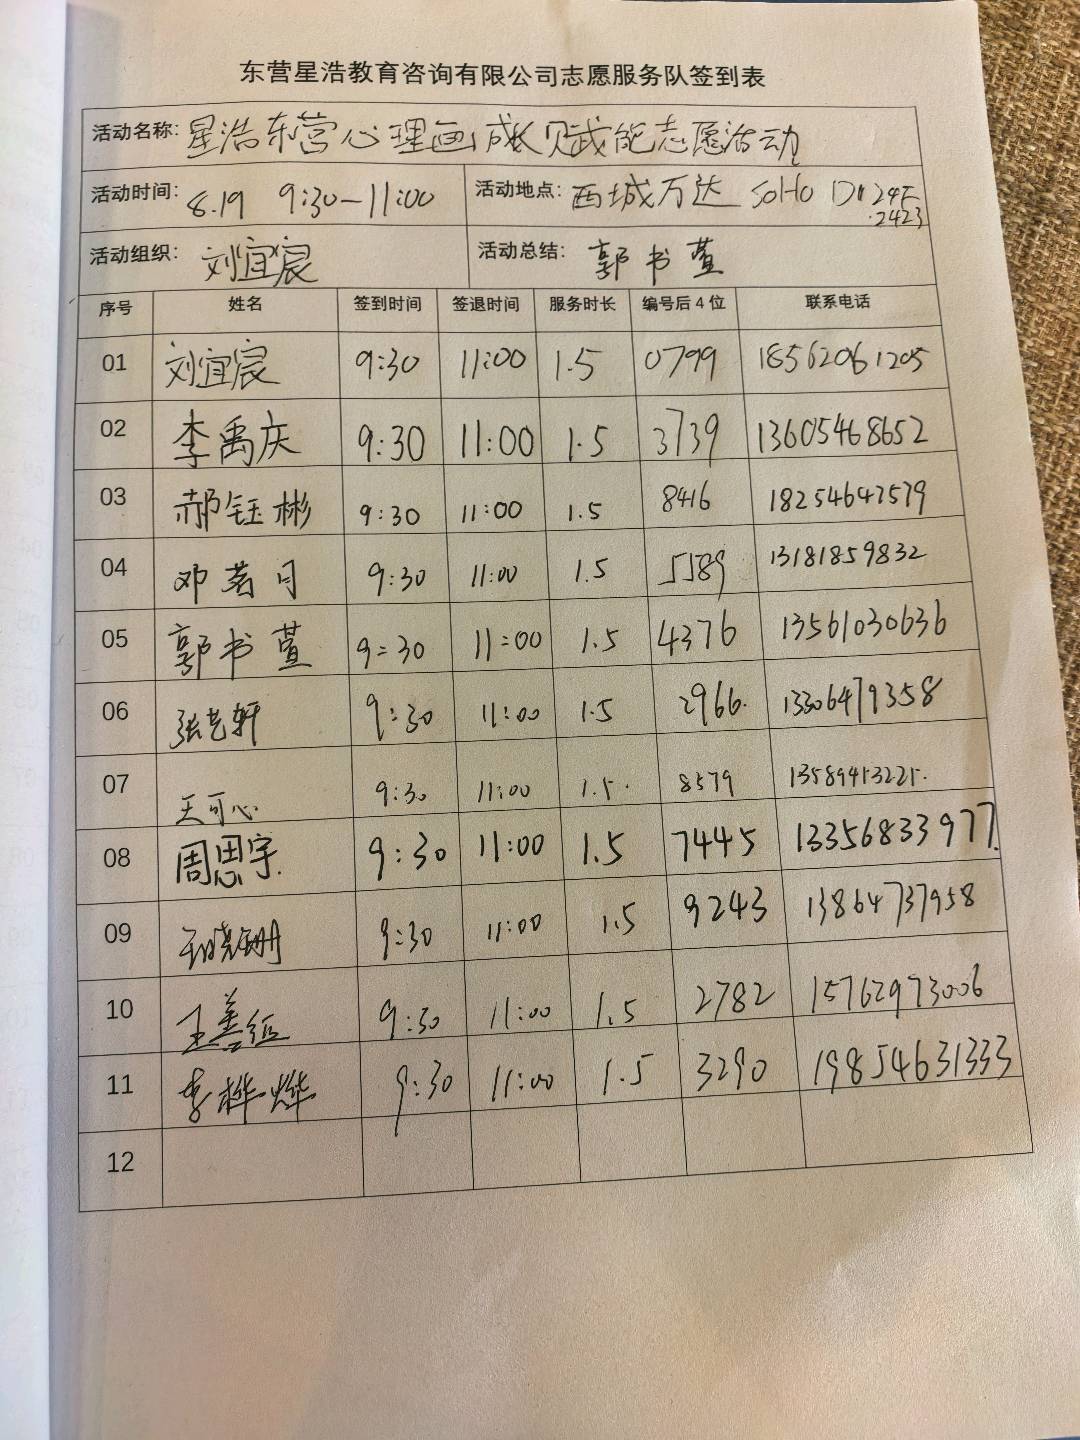 东营星浩教育咨询有限公司志愿服务队签到表
活动名称: 星浩东营心理画成长赋能志愿活动
活动时间: 8.19 9:30-11:00 活动地点: 西城万达 SOHO 24F 2423
活动组织: 刘宜宸 活动总结: 郭书萱
序号 姓名 签到时间 签退时间 服务时长 编号后4位 联系电话
01 刘宜宸 9:30 11:00 1.5 0799 18562061205
02 李禹庆 9:30 11:00 1.5 3739 13605468652
03 郝钰彬 9:30 11:00 1.5 8416 18254647579
04 邓茗月 9:30 11:00 1.5 5589 13181859832
05 郭书萱 9:30 11:00 1.5 4376 13561030636
06 张艺轩 9:30 11:00 1.5 2966. 13306479358
07 王可心 9:30 11:00 1.5. 8579 13589453225.
08 周思宇. 9:30 11:00 1.5 7445 13356833977.
09 9:30 11:00 1.5 9243 13864737958
10 王善 9:30 11:00 1.5 2782 15762973006
11 李桦烨 9:30 11:00 1.5 3290 19854631333
12